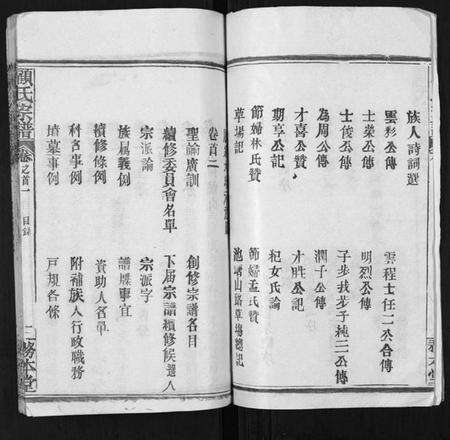 族人詩詞選
雲彩公傳
雲程士任二公合傳
士榮公傳
明烈公傳
士俊公傳
子步扶步子純三公傳
為周公傳
潤子公傳
才喜公贊
才胜公記
期享公記
杞女氏記
節婦林氏贊
節婦孟氏贊
草場記
池塘山路草場總記
卷首二
聖諭廣訓
創修宗譜名目
續修委員會名單
下届宗譜續修候選人
宗派論
宗派字
族属義例
譜牒事宜
續修條例
資助人名單
科名事例
附補族人行政職務
墳墓事例
戸規各條
顧氏宗譜
卷之首一
目錄
二
務本堂